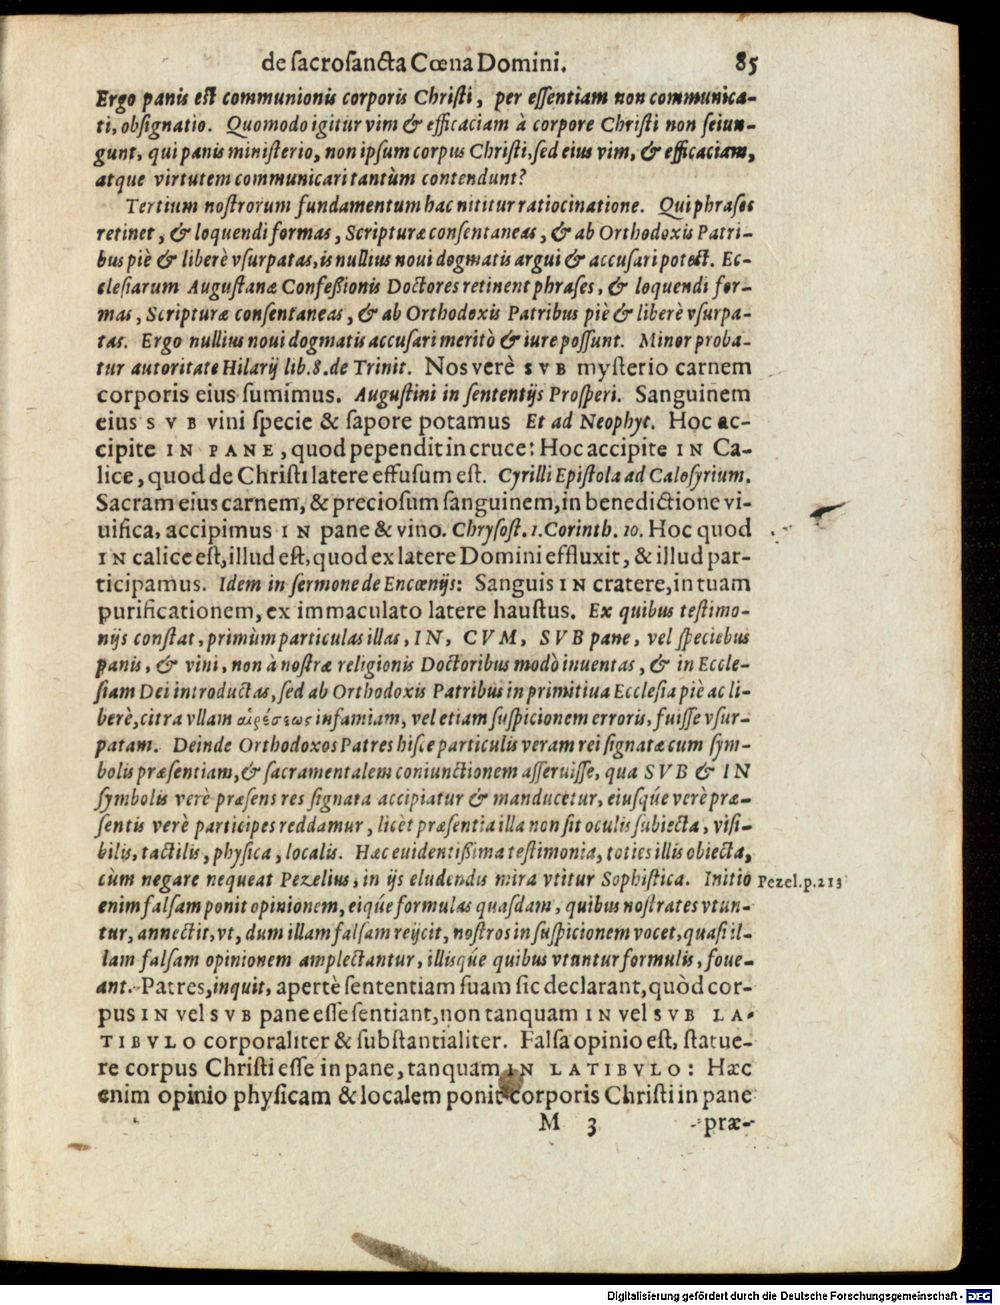 de ſacroſancta Cœna Domini. 85
Ergo panis est communionis corporis Chriſti, per eſſentiam non communica-
ti, obſignatio. Quomodo igitur vim & efficaciam à corpore Chriſti non ſeiun-
gunt, qui panis miniſterio, non ipſum corpus Chriſti, ſed eius vim, & efficaciam,
atque virtutem communicari tantùm contendunt?
Tertium noſtrorum fundamentum hac nititur ratiocinatione. Qui phraſes
retinet, & loquendi formas, Scripturæ conſentaneas, & ab Orthodoxis Patri-
bus piè & liberè vſurpatas, is nullius noui dogmatis argui & accuſari poteſt. Ec-
cleſiarum Auguſtanæ Confeßionis Doctores retinent phraſes, & loquendi for-
mas, Scripturæ conſentaneas, & ab Orthodoxis Patribus piè & liberè vſurpa-
tas. Ergo nullius noui dogmatis accuſari meritò & iure poſſunt. Minor proba-
tur autoritate Hilarij lib. 8. de Trinit. Nos verè SVB myſterio carnem
corporis eius ſumimus. Auguſtini in ſententijs Proſperi. Sanguinem
eius SVB vini ſpecie & ſapore potamus Et ad Neophyt. Hoc ac-
cipite IN PANE, quod pependit in cruce: Hoc accipite IN Ca-
lice, quod de Chriſti latere effuſum eſt. Cyrilli Epiſtola ad Caloſyrium.
Sacram eius carnem, & precioſum ſanguinem, in benedictione vi-
uifica, accipimus IN pane & vino. Chryſoſt. 1. Corinth. 10. Hoc quod
IN calice eſt, illud eſt, quod ex latere Domini effluxit, & illud par-
ticipamus. Idem in ſermone de Encœnijs: Sanguis IN cratere, in tuam
purificationem, ex immaculato latere hauſtus. Ex quibus teſtimo-
nijs conſtat, primùm particulas illas, IN, CVM, SVB pane, vel ſpeciebus
panis, & vini, non à noſtræ religionis Doctoribus modò inuentas, & in Eccle-
ſiam Dei introductas, ſed ab Orthodoxis Patribus in primitiua Eccleſia piè ac li-
berè, citra vllam αἱρέσεως infamiam, vel etiam ſuſpicionem erroris, fuiſſe vſur-
patam. Deinde Orthodoxos Patres hiſce particulis veram rei ſignatæ cum ſym-
bolis præſentiam, & ſacramentalem coniunctionem aſſeruiſſe, qua SVB & IN
ſymbolis verè præſens res ſignata accipiatur & manducetur, eiusq́ue verè præ-
ſentis verè participes reddamur, licèt præſentia illa non ſit oculis ſubiecta, viſi-
bilis, tactilis, phyſica, localis. Hæc euidentißima teſtimonia, toties illis obiecta,
cùm negare nequeat Pezelius, in ijs eludendis mira vtitur Sophiſtica. Initio Pezel. p. 213
enim falſam ponit opinionem, eiq́ue formulas quaſdam, quibus noſtrates vtun-
tur, annectit, vt, dum illam falſam reijcit, noſtros in ſuſpicionem vocet, quaſi il-
lam falſam opinionem amplectantur, illisq́ue quibus vtuntur formulis, foue-
ant. Patres, inquit, apertè ſententiam ſuam ſic declarant, quòd cor-
pus IN vel SVB pane eſſe ſentiant, non tanquam IN vel SVB LA-
TIBVLO corporaliter & ſubſtantialiter. Falſa opinio eſt, ſtatue-
re corpus Chriſti eſſe in pane, tanquam IN LATIBVLO: Hæc
enim opinio phyſicam & localem ponit corporis Chriſti in pane
M 3 præ-
Digitalisierung gefördert durch die Deutsche Forschungsgemeinschaft - DFG